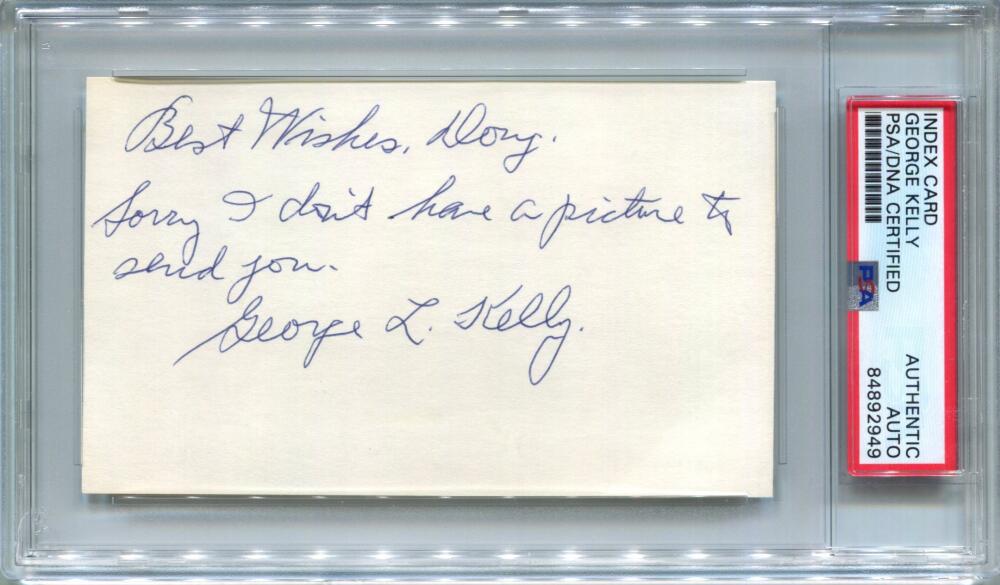 Best Wishes, Doug.
Sorry I don't have a picture to
send you.
George L. Kelly.
INDEX CARD
GEORGE KELLY
PSA/DNA CERTIFIED
PSA
AUTHENTIC
AUTO
84892949